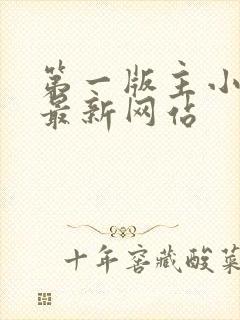 第一版主小
最新网佔
十年窖藏酸菜